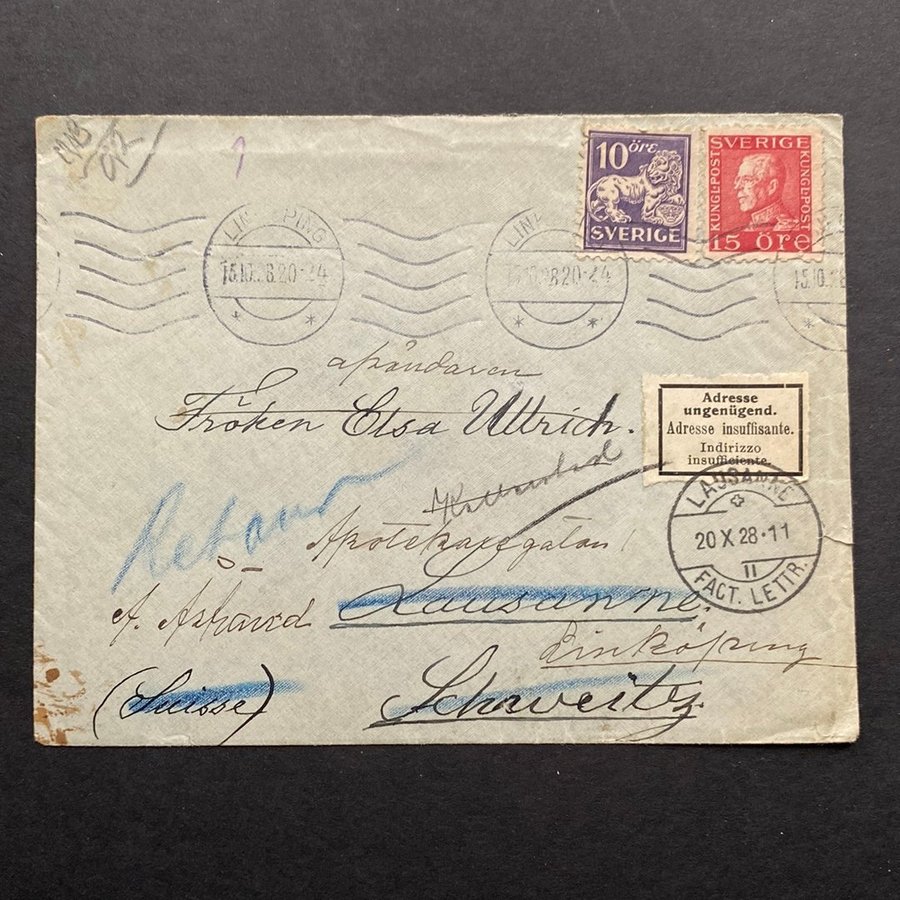 10 öre
SVERIGE
SVERIGE
KUNGL·POST
KUNGL·POST
15 öre
LINKÖPING
15.10.28.20-24
LIN
15.10.28.20-24
15.10.2
Fröken Elsa Ullrich.
Adresse
ungenügend.
Adresse insuffisante.
Indirizzo
insufficiente.
Retour
LAUSANNE
20 X 28·11
II
FACT. LETTR.
Apotekaregatan 1
A. Åstrand
Lausanne.
Linköping
(Suisse)
Schweitz.